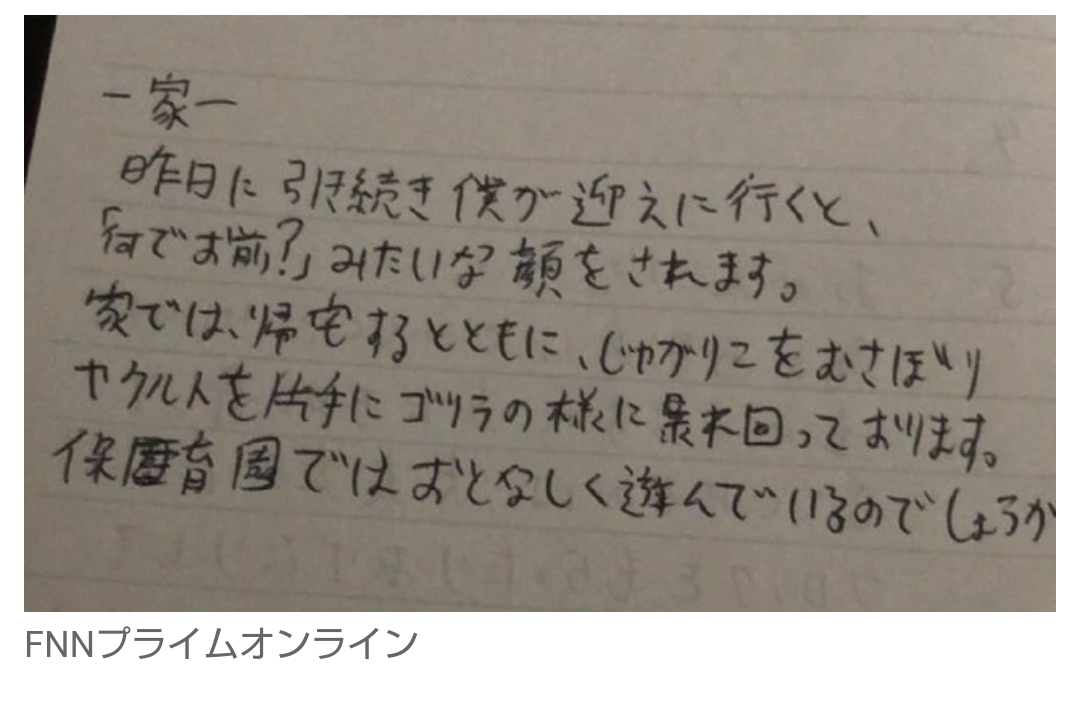 ー家ー
昨日に引き続き僕が迎えに行くと、
「何でお前?」みたいな顔をされます。
家では、帰宅するとともに、じゃがりこをむさぼり
ヤクルトを片手にゴジラの様に暴れ回っております。
保育園ではおとなしく遊んでいるのでしょうか
FNNプライムオンライン